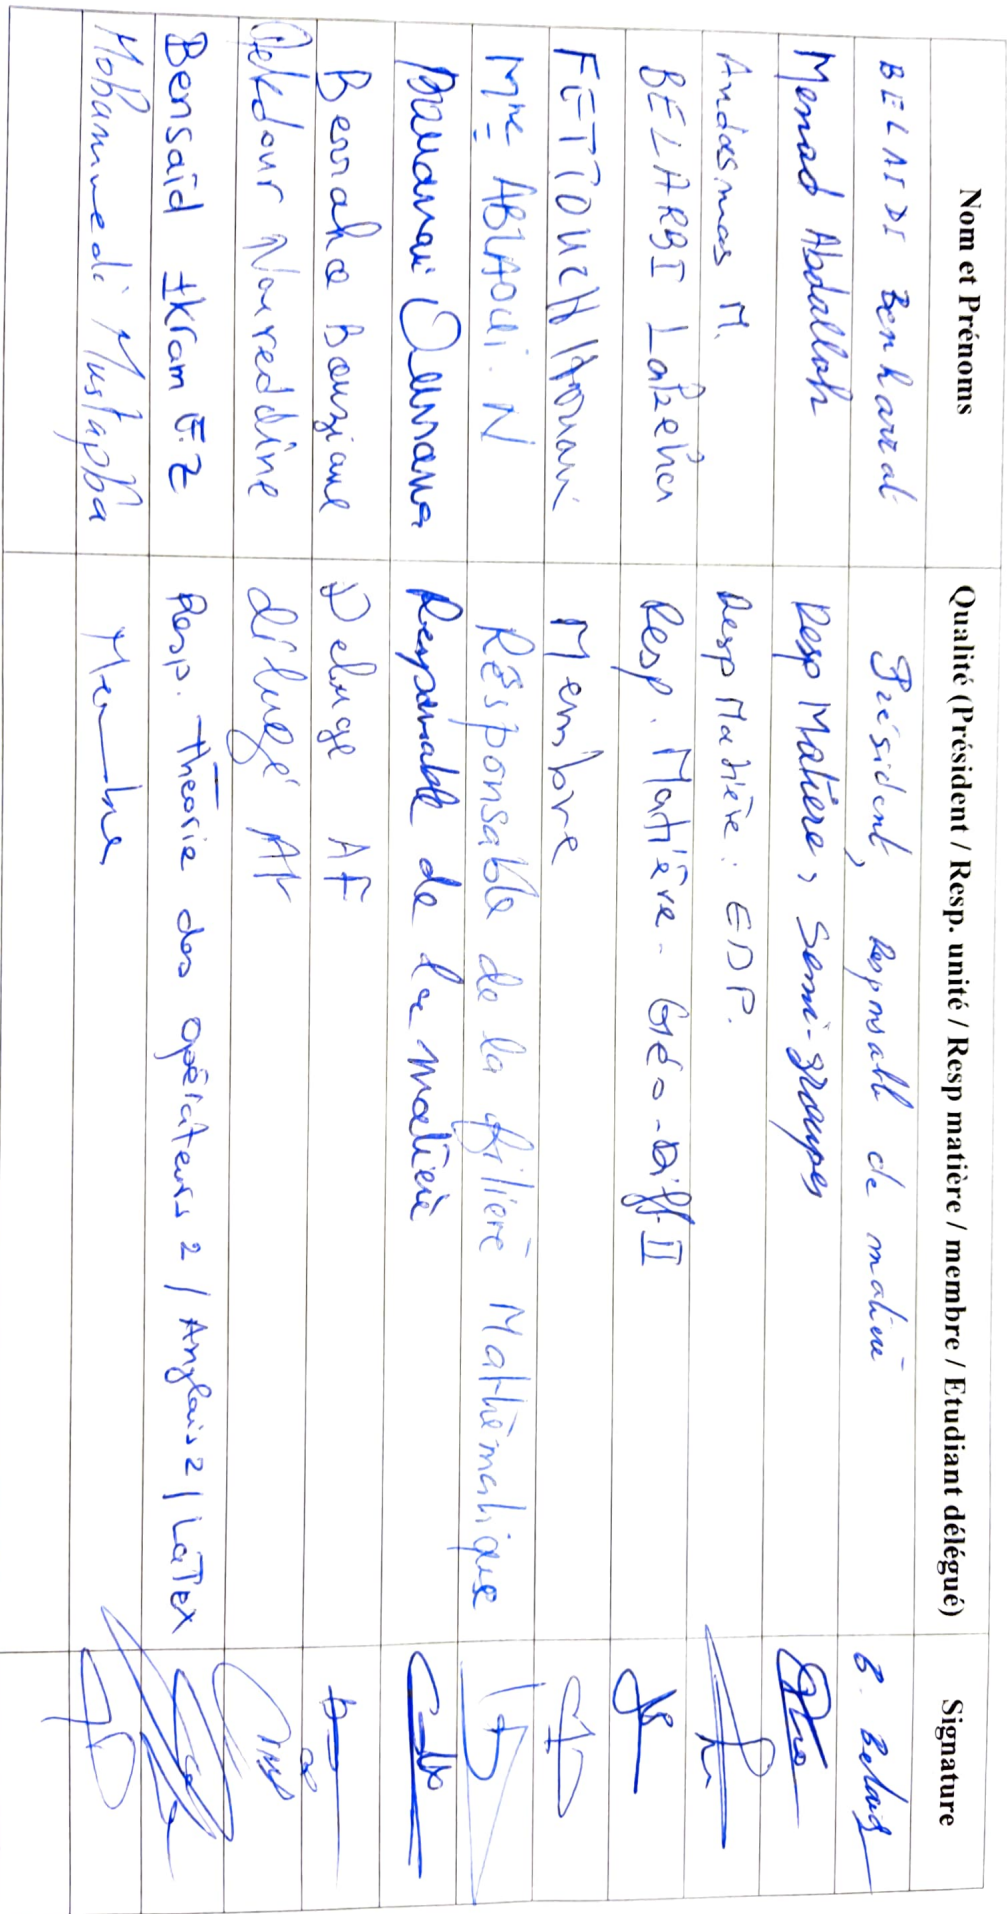 Nom et Prénoms Qualité (Président / Resp. unité / Resp matière / membre / Etudiant délégué) Signature
BELAIDI Benharrat Président, Responsable de matière B. Belaidi
Menad Abdallah Resp Matière, Semi-groupes
Andasmas M. Resp Matière: EDP.
BELARBI Lakehal Resp. Matière- Géo-Diff II
FETTOUCH Houari Membre
Mme ABLAOUI. N Résponsable de la filière Mathématique
Oussama Responsable de la matière
Berraho Bouziane Deluge AF
Noureddine diluegé AF
Bensaid Ikram F.Z Resp. Théorie des opérateurs 2 / Anglais 2 / LaTex
Mohammedi Mustapha Membre